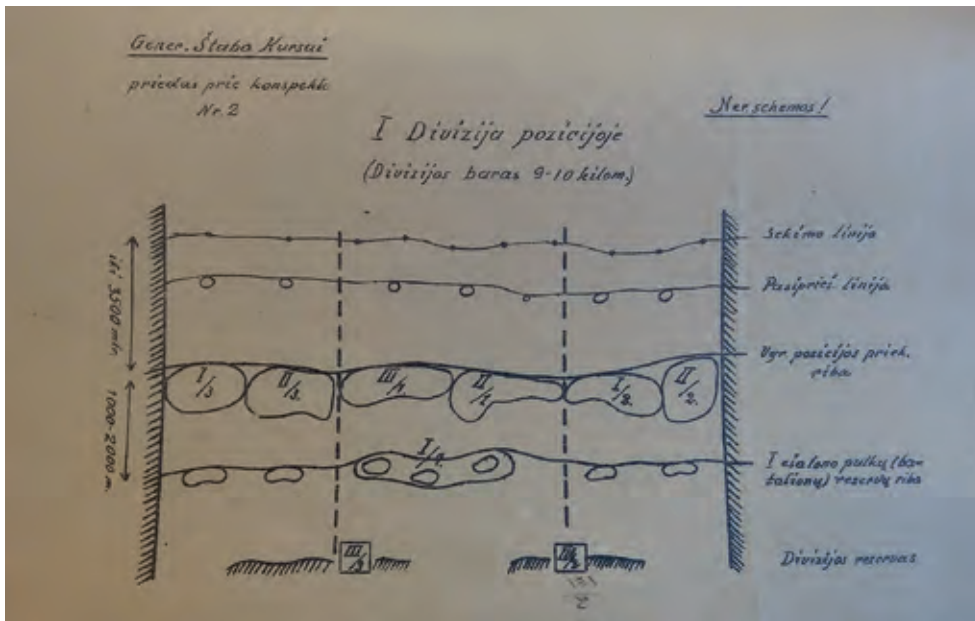 Gener. Štabo Kursai
priedas prie konspekto
Nr. 2
Ner. schemos!
I Divizija pozicijoje
(Divizijos baras 9-10 kilom.)
Sekimo linija
Pasiprieš. linija
iki 3500 mtr.
Vyr. pozicijos priek.
riba
I/3
II/3.
III/1.
II/1
I/2.
II/2.
1000-2000 m.
I/1.
I ešalono pulkų (ba-
talionų) reservų riba
III/3
III/2
Divizijos reservas